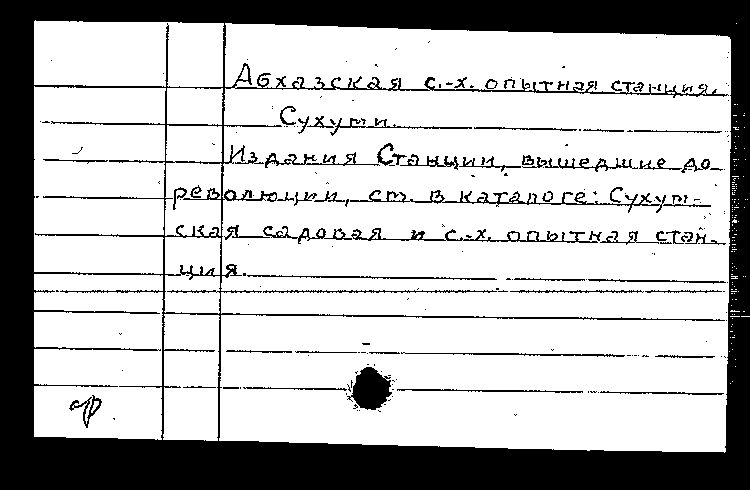 Абхазская с.-х. опытная станция.
Сухуми.
Издания Станции, вышедшие до
революции, см. в каталоге: Сухум-
ская садовая и с.-х. опытная стан-
ция.